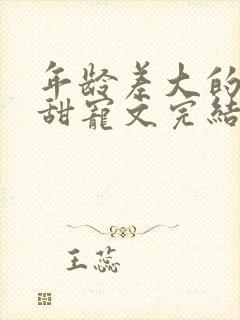 年龄差大的
甜宠文完结
王蕊